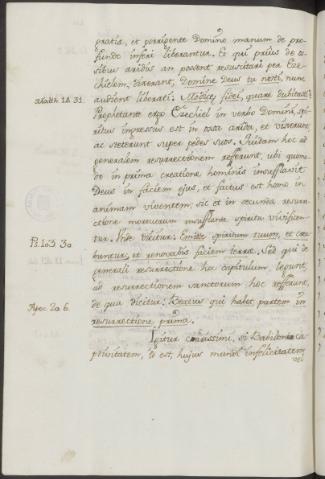 gratia, et porrigente Domino manum de pro-
funde inferi liberantur. Et qui prius de os-
sibus aridis an possent resuscitari per Eze-
chielem, dixerant, Domine Deus tu nosti, nunc
Matth. 14. 31. audient liberati: Modice fidei, quare dubitasti?
Prophetante ergo Ezechiel in verbo Domini, spi-
ritus ingressus est in ossa arida, et vixerunt,
ac steterunt super pedes suos. Quidam hoc ad
generalem resurrectionem referunt, ubi quomo-
do in prima creatione hominis insufflavit
Deus in faciem ejus, et factus est homo in
animam viventem; sic et in secunda resur-
rectione mortuorum insufflans spiritu vivificen-
tur. Unde dicitur: Emitte spiritum tuum, et crea-
Ps. 103. 30. buntur, et renovabis faciem terrae. Sed qui de
generali resurrectione hoc capitulum legunt,
ad resurrectionem sanctorum hoc referunt,
Apoc. 20. 6. de qua dicitur: Beatus qui habet partem in
resurrectione prima.
Igitur carissimi, si Babilonis ca-
ptivitatem, id est, hujus mundi infelicitatem